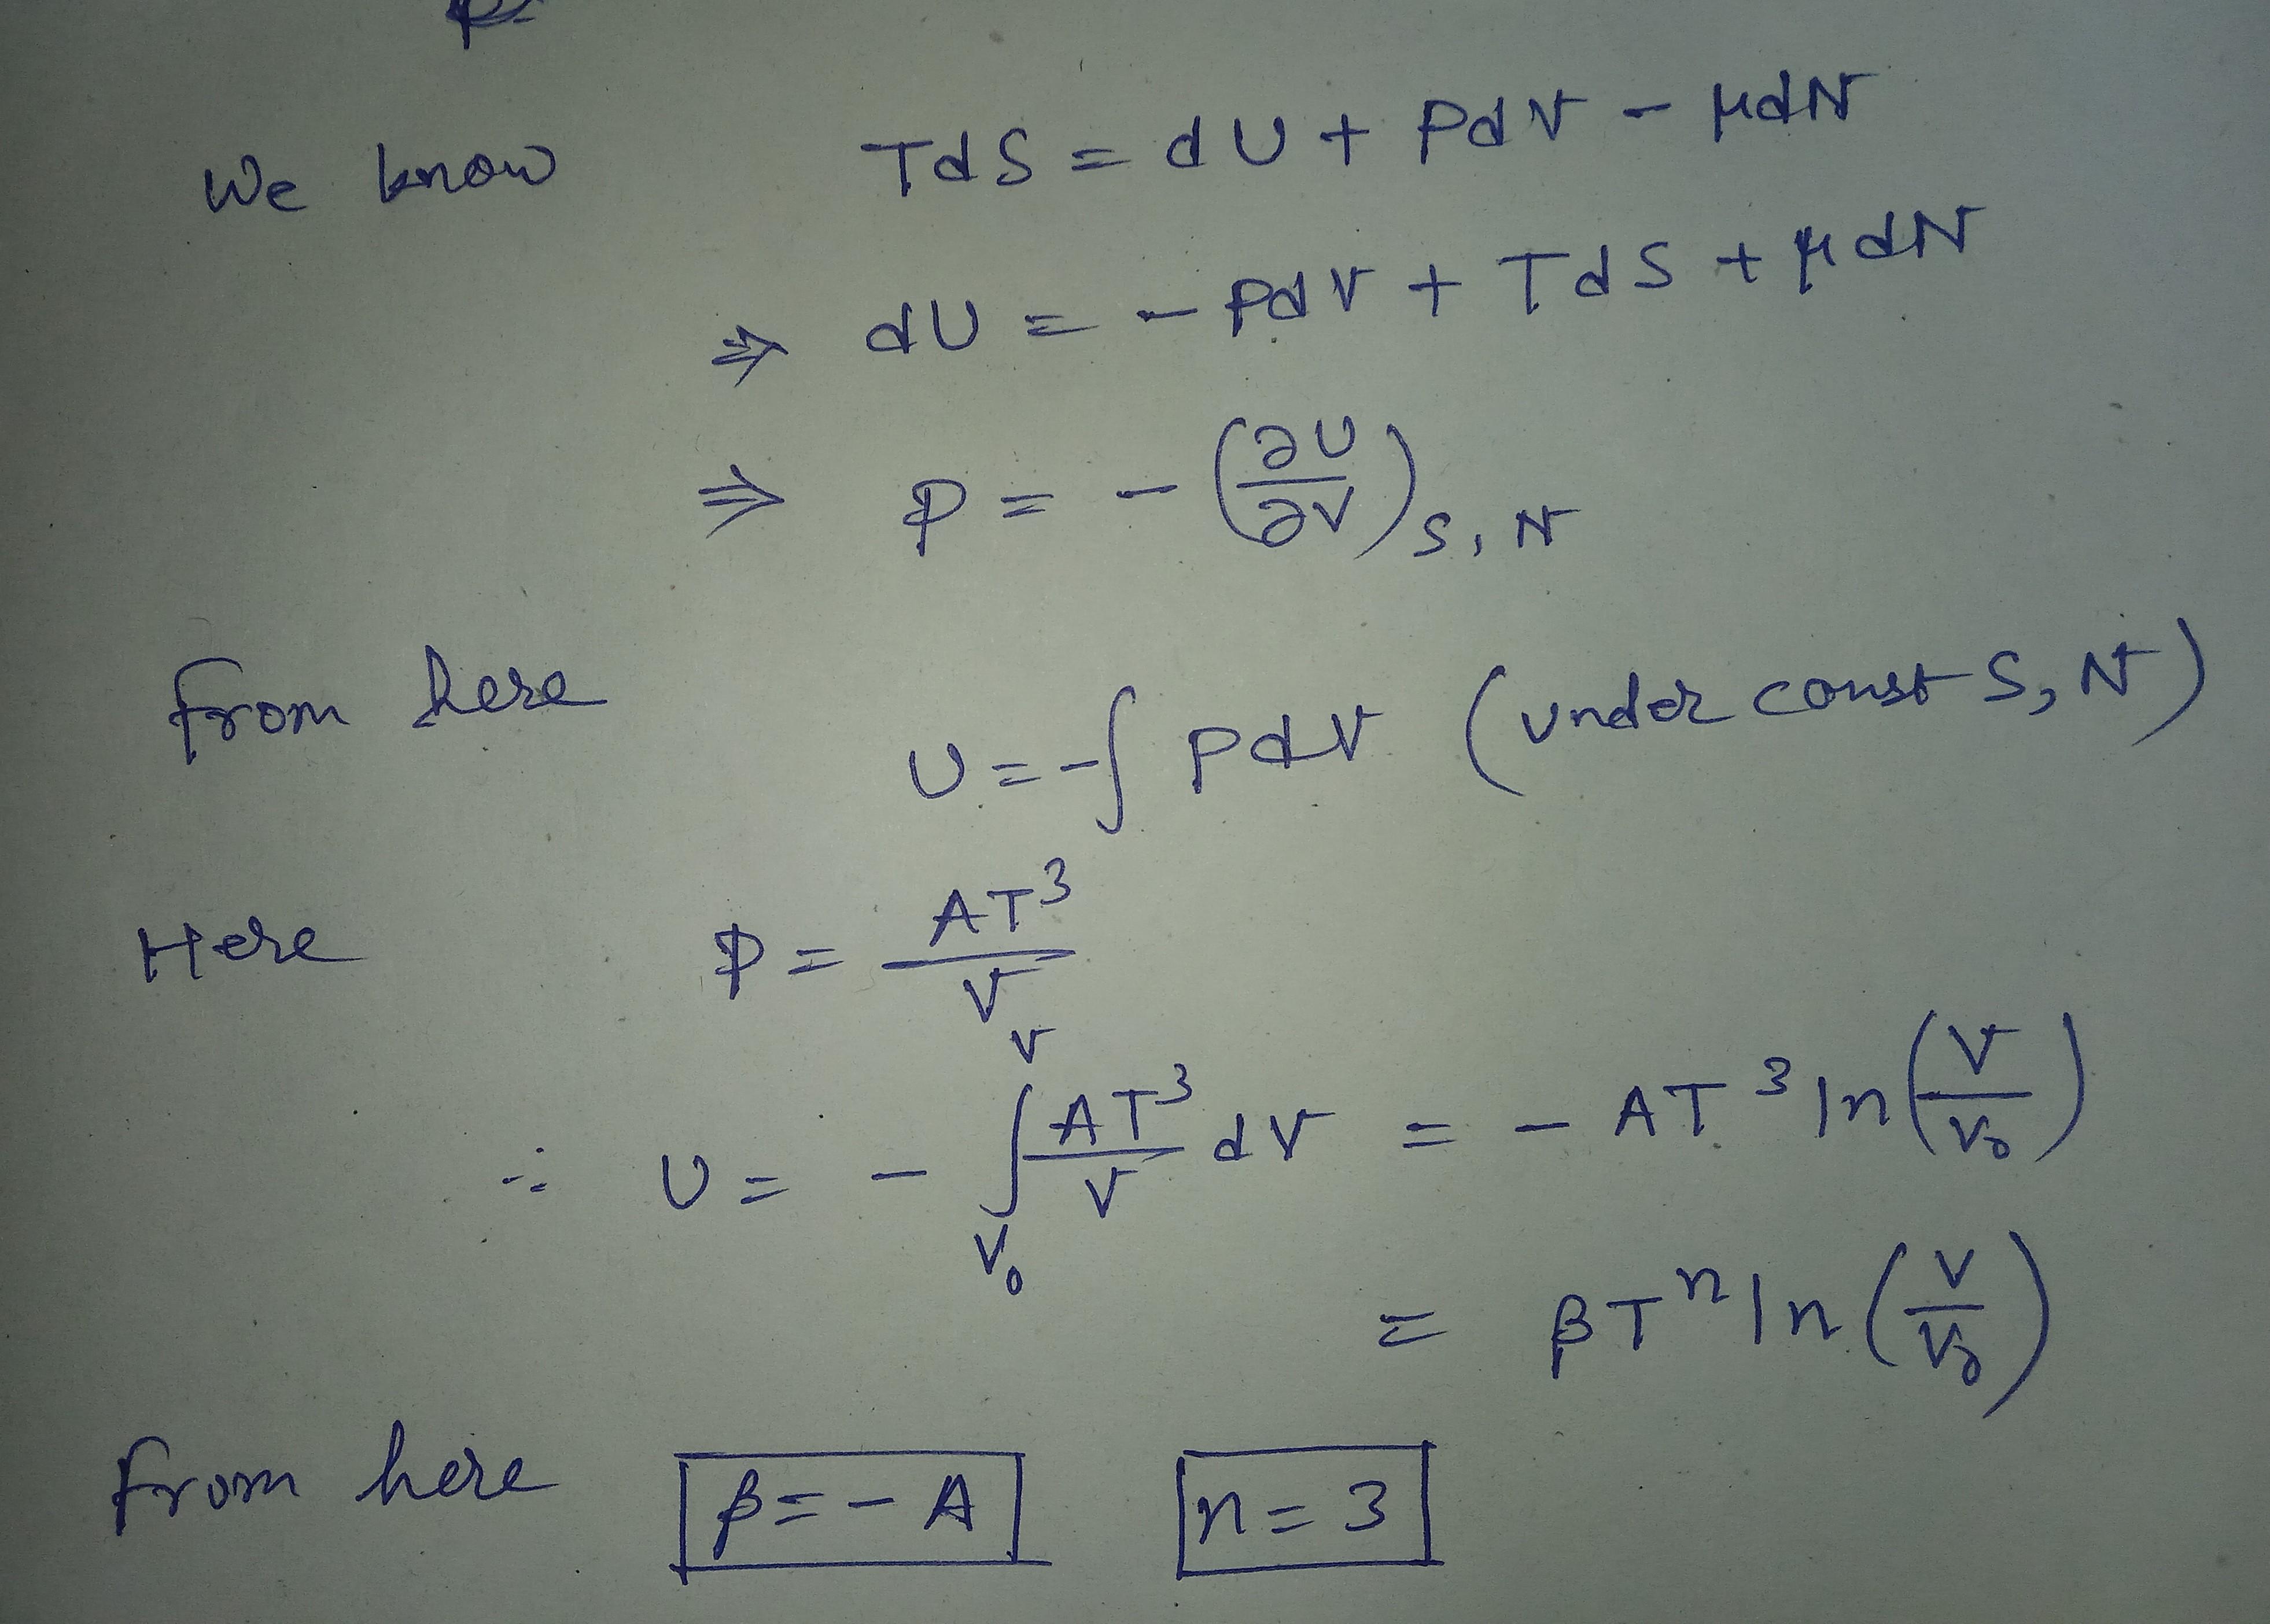 We know TdS = dU + PdV - μdN
⇒ dU = - PdV + TdS + μdN
⇒ P = - (∂U/∂V)S,N
From here
U = -∫ PdV (under const S, N)
Here P = AT³/V
∴ U = - ∫_{V₀}^{V} AT³/V dV = - AT³ ln(V/V₀)
= βTⁿ ln(V/V₀)
From here β = - A n = 3